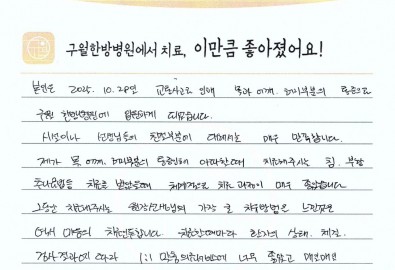 구월한방병원에서 치료, 이만큼 좋아졌어요!
본인은 2025. 10. 29일 교통사고로 인해 목과 어깨, 허리부분의 통증으로
구월 한방병원에 입원하게 되었습니다.
시설이나 선생님들의 친절부분이 대해서는 매우 만족합니다.
제가 목, 어깨, 허리부분의 통증에 아파할때 치료해주시는 침, 부항
추나요법을 치료를 받았을때 체계적으로 치료 과정이 매우 좋았습니다
치료해주시는 원장선생님의 가장 큰 치료방법은 느낀점은
마음의 치료인듯합니다 치료할때마다 환자의 상태, 체질,
검사결과에 따라 1:1 맞춤 너무 좋았고